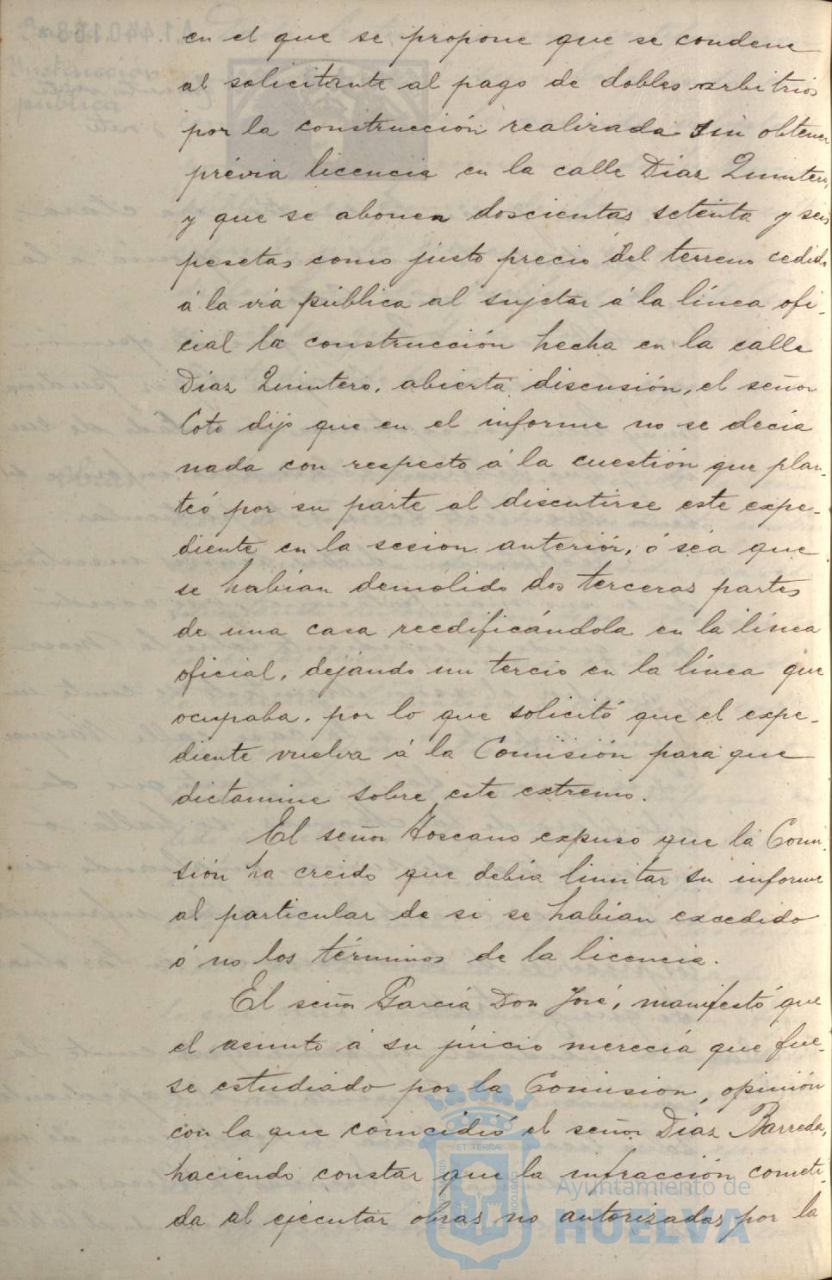 en el que se propone que se condene
al solicitante al pago de dobles arbitrios
por la construcción realizada sin obtener
prévia licencia en la calle Díaz Quintero,
y que se abonen doscientas setenta y seis
pesetas como justo precio del terreno cedido
á la vía pública al sujetar á la línea ofi-
cial la construcción hecha en la calle
Díaz Quintero, abierta discusión, el señor
Coto dijo que en el informe no se decía
nada con respecto á la cuestión que plan-
teó por su parte al discutirse este expe-
diente en la sesion anterior, ó sea que
se habían demolido dos terceras partes
de una casa reedificándola en la línea
oficial, dejando un tercio en la línea que
ocupaba, por lo que solicitó que el expe-
diente vuelva á la Comisión para que
dictamine sobre este extremo.
El señor Toscano expuso que la Comi-
sión ha creido que debía limitar su informe
al particular de si se habían excedido
ó no los términos de la licencia.
El señor García Don José, manifestó que
el asunto á su juicio merecía que fue-
se estudiado por la Comision, opinión
con la que coincidió el señor Díaz Barreda,
haciendo constar que la infracción cometi-
da al ejecutar obras no autorizadas por la
Ayuntamiento de
HUELVA